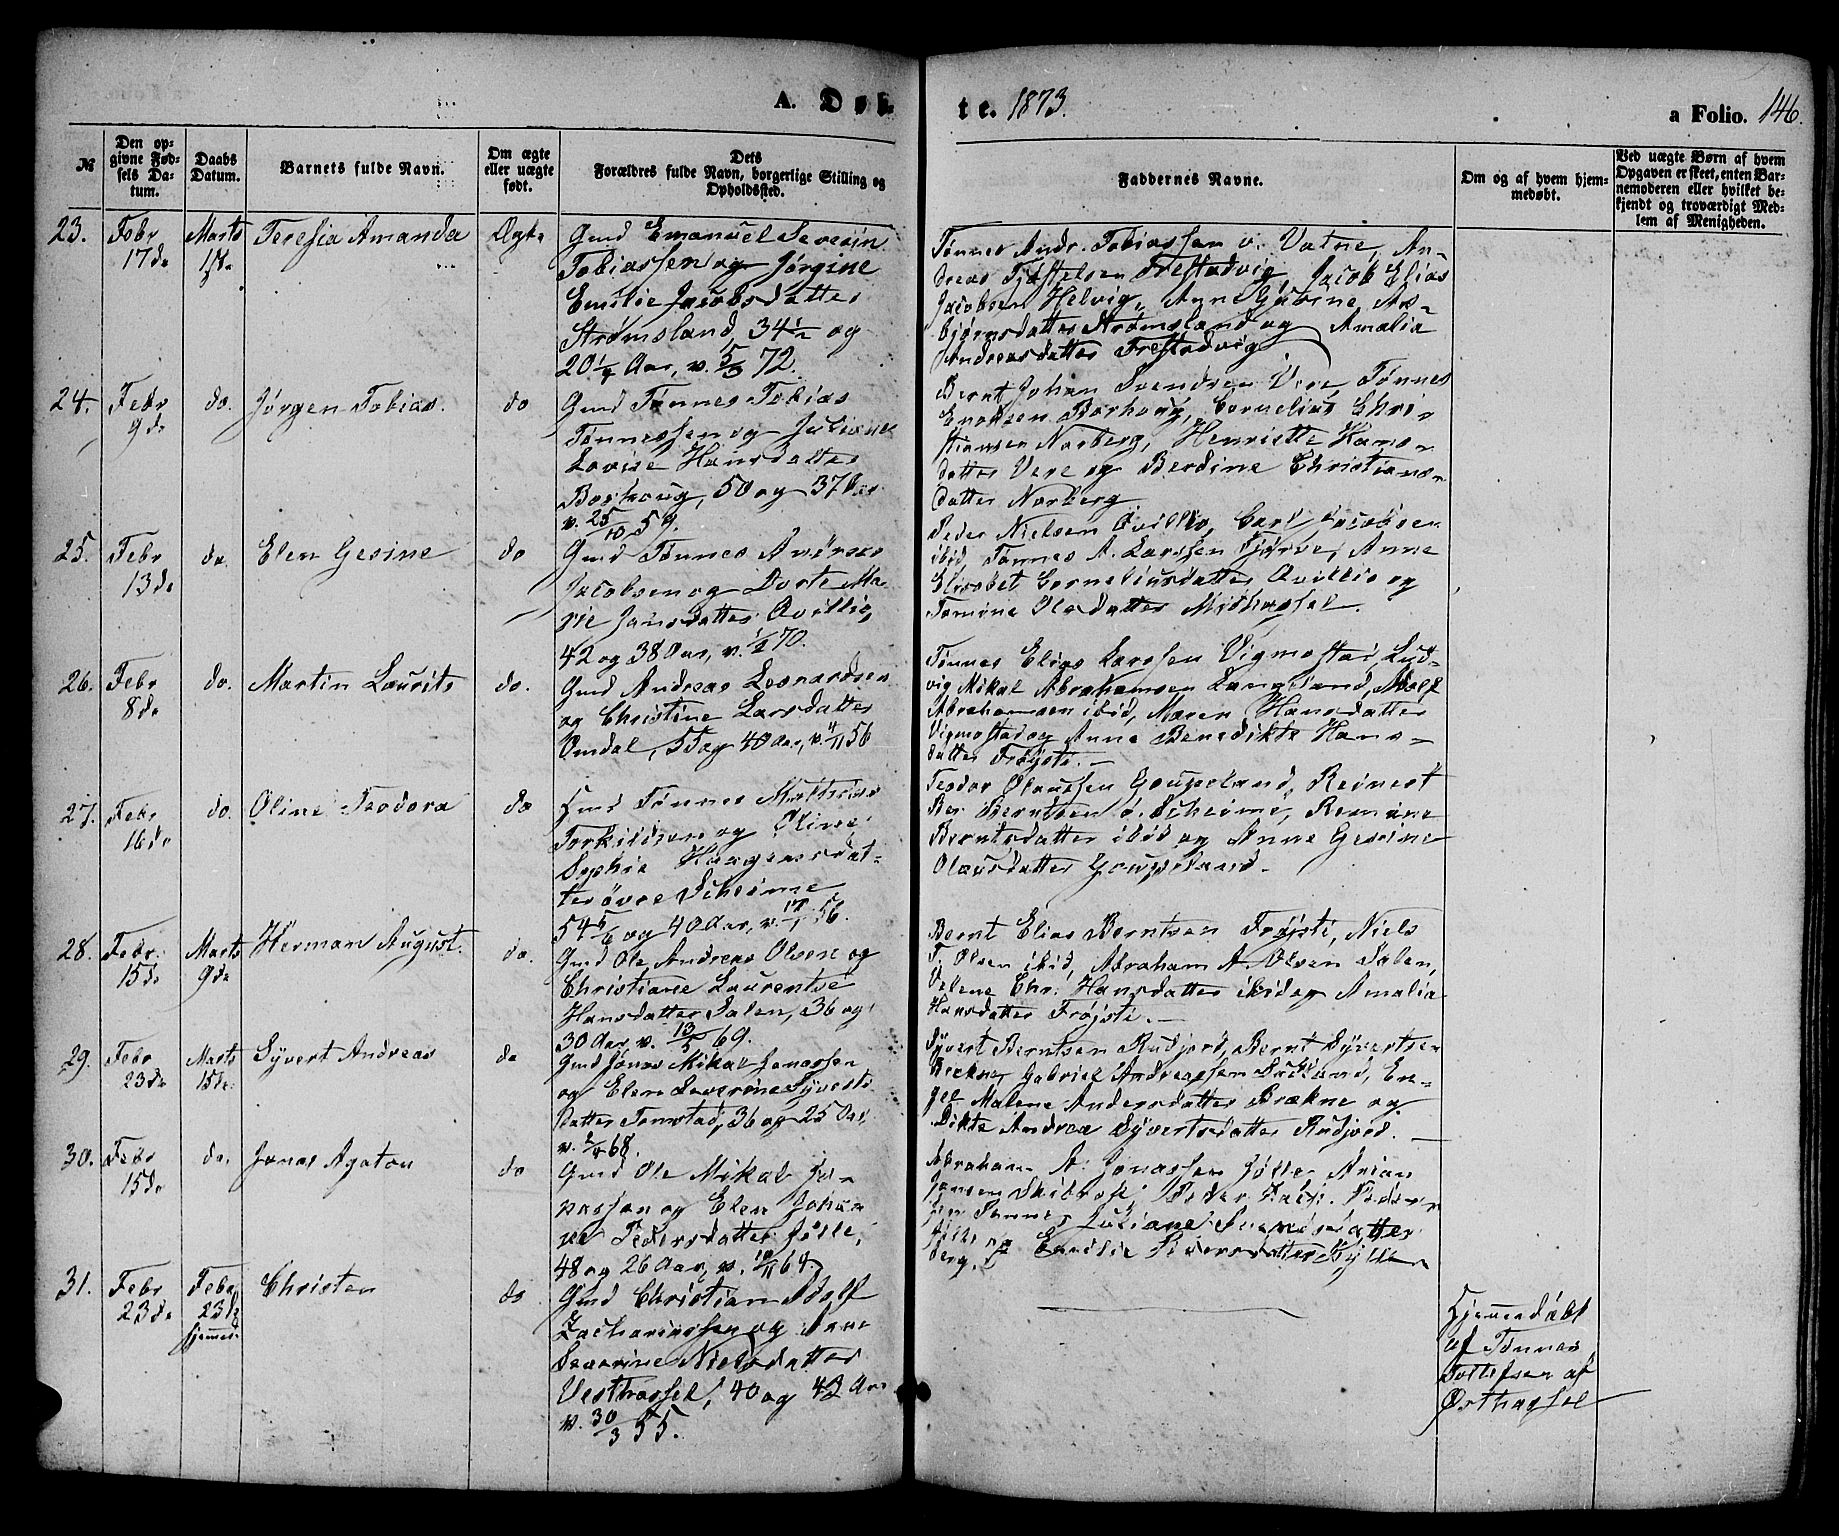 A. Døb-
te. 1873.
a Folio. 146.
№
Den op-
givne Fød-
sels Da-
tum.
Daabs
Datum.
Barnets fulde Navn.
Om ægte
eller uægte
født.
Dets
Forældres fulde Navn, borgerlige Stilling og
Opholdssted.
Faddernes Navne.
Om og af hvem hjem-
medøbt.
Ved uægte Børn af hvem
Opgaven er skeet, enten Bar-
nemoderen eller hvilket be-
kjendt og troværdigt Med-
lem af Menigheden.
23.
Febr
17de
Marts
1ste
Teresia Amanda
Ægte
Gmd Emanuel Severin
Tobiassen og Jørgine
Emilie Jacobsdatter
Strømsland, 34½ og
20¼ Aar, v. 5/3 72.
Tønnes Andr. Tobiassen v. Vatne, An-
dreas Tjøstelsen Frestadvig, Jacob Elias
Jacobsen Helvig, Anne Gurine As-
bjørnsdatter Strømsland og Amalia
Andreasdatter Frestadvig
24.
Febr
9de
do.
Jørgen Tobias.
do
Gmd Tønnes Tobias
Tønnessen og Juliane
Lovise Hansdatter
Borhoug, 50 og 37 Aar
v. 25/10 59.
Bernt Johan Svendsen Vere, Tønnes
Enoksen Borhoug, Cornelius Chri-
stiansen Norberg, Henriette Hans-
datter Vere og Berdine Christians-
datter Norberg
25.
Febr
13de
do.
Elen Gesine
do
Gmd Tønnes Andreas
Jacobsen og Dorte Ma-
rie Jansdatter Qvillio,
42 og 38 Aar, v. 70.
Peder Nielsen Qvillio, Carl Jacobsen
ibid, Tønnes A. Larssen Tjørve, Anne
Elisabet Corneliusdatter Qvillio og
Tomine Olsdatter Midthassel.
26.
Febr
8de
do.
Martin Laurits
do.
Gmd Andreas Leonardsen
og Christine Larsdatter
Omdal, 55 og 40 Aar, v. 4/11 56
Tønnes Elias Larssen Vigmostad, Lud-
vig Mikal Abrahamsen Langeland, Adolf
Abrahamsen ibid, Maren Hansdatter
Vigmostad og Anne Benedikte Hans-
datter Frøjsti. —
27.
Febr
16de
do.
Oline Teodora
do
Gmd Tønnes Mathias
Torkildsen og Oline
Sophie Haagensdat-
ter øvre Scheime
54 5/6 og 40 Aar, v. 17/1 56.
Teodor Olaussen Goupeland, Reinert
Ber. Berntsen ø. Scheime, Romine
Berntsdatter ibid og Anne Gesine
Olausdatter Goupeland.
28.
Febr.
15de
Marts
9de
Herman August.
do.
Gmd Ole Andreas Olsen og
Christiane Laurentse
Hansdatter Dalen, 36 og
30 Aar, v. 13/5 69.
Bernt Elias Berntsen Frøjsti, Niels
T. Olsen ibid, Abraham A. Olsen Dalen,
Velene Chr. Hansdatter ibid og Amalia
Hansdatter Frøjsti. —
29.
Febr
23de
Marts
15de
Syvert Andreas
do
Gmd Jonas Mikal Jonassen
og Elen Severine Syverts-
datter Tomstad, 36 og 25 Aar,
v. 68.
Syvert Berntsen Rudjord, Bernt Syvertsen
Brekne, Gabriel Andreassen Ladland, En-
gel Malene Andersdatter Brækne og
Dikte Andrea Syvertsdatter Rudjord. —
30.
Febr
15de
do.
Jonas Agaton
do
Gmd Ole Mikal Jo-
nassen og Elen Johan-
ne Pedersdatter Jølle,
48 og 26 Aar, v. 10/11 64
Abraham A. Jonassen Jølle, Arian
Jansen Skibrok, Peder
Juliane
Jølle og Emilie Pedersdatter
berg.
31.
Febr
23de
Febr
23de
hjemmed.
Christen
do
Gmd Christian Adolf
Zachariassen og Anne
Severine Nielsdatter
Vesthassel, 40 og 43 Aar
v. 30/3 55.
Hjemmedøbt
af Tønnes
Tollefsen af
Østhassel